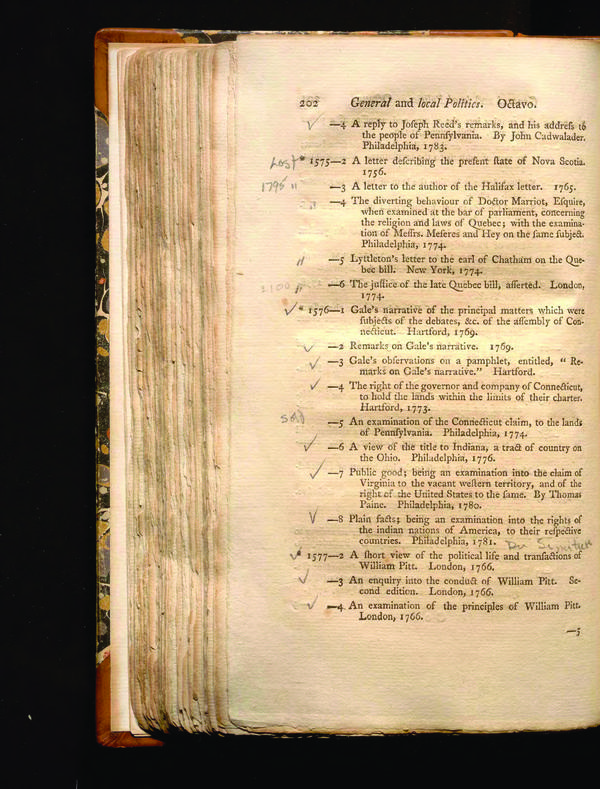 202 General and local Politics. Octavo.
—4 A reply to Joseph Reed's remarks, and his addreſs to
the people of Pennſylvania. By John Cadwalader.
Philadelphia, 1783.
Lost * 1575—2 A letter deſcribing the preſent ſtate of Nova Scotia.
1756.
1795 " —3 A letter to the author of the Halifax letter. 1765.
" —4 The diverting behaviour of Doctor Marriot, Eſquire,
when examined at the bar of parliament, concerning
the religion and laws of Quebec; with the examina-
tion of Meſſrs. Meſeres and Hey on the ſame ſubject.
Philadelphia, 1774.
" —5 Lyttleton's letter to the earl of Chatham on the Que-
bec bill. New York, 1774.
" —6 The juſtice of the late Quebec bill, aſſerted. London,
1774.
* 1576—1 Gale's narrative of the principal matters which were
ſubjects of the debates, &c. of the aſſembly of Con-
necticut. Hartford, 1769.
—2 Remarks on Gale's narrative. 1769.
—3 Gale's obſervations on a pamphlet, entitled, " Re-
marks on Gale's narrative." Hartford.
—4 The right of the governor and company of Connecticut,
to hold the lands within the limits of their charter.
Hartford, 1773.
—5 An examination of the Connecticut claim, to the lands
of Pennſylvania. Philadelphia, 1774.
—6 A view of the title to Indiana, a tract of country on
the Ohio. Philadelphia, 1776.
—7 Public good; being an examination into the claim of
Virginia to the vacant weſtern territory, and of the
right of the United States to the ſame. By Thomas
Paine. Philadelphia, 1780.
—8 Plain facts; being an examination into the rights of
the indian nations of America, to their reſpective
countries. Philadelphia, 1781.
* 1577—2 A ſhort view of the political life and tranſactions of
William Pitt. London, 1766.
—3 An enquiry into the conduct of William Pitt. Se-
cond edition. London, 1766.
—4 An examination of the principles of William Pitt.
London, 1766.
—5